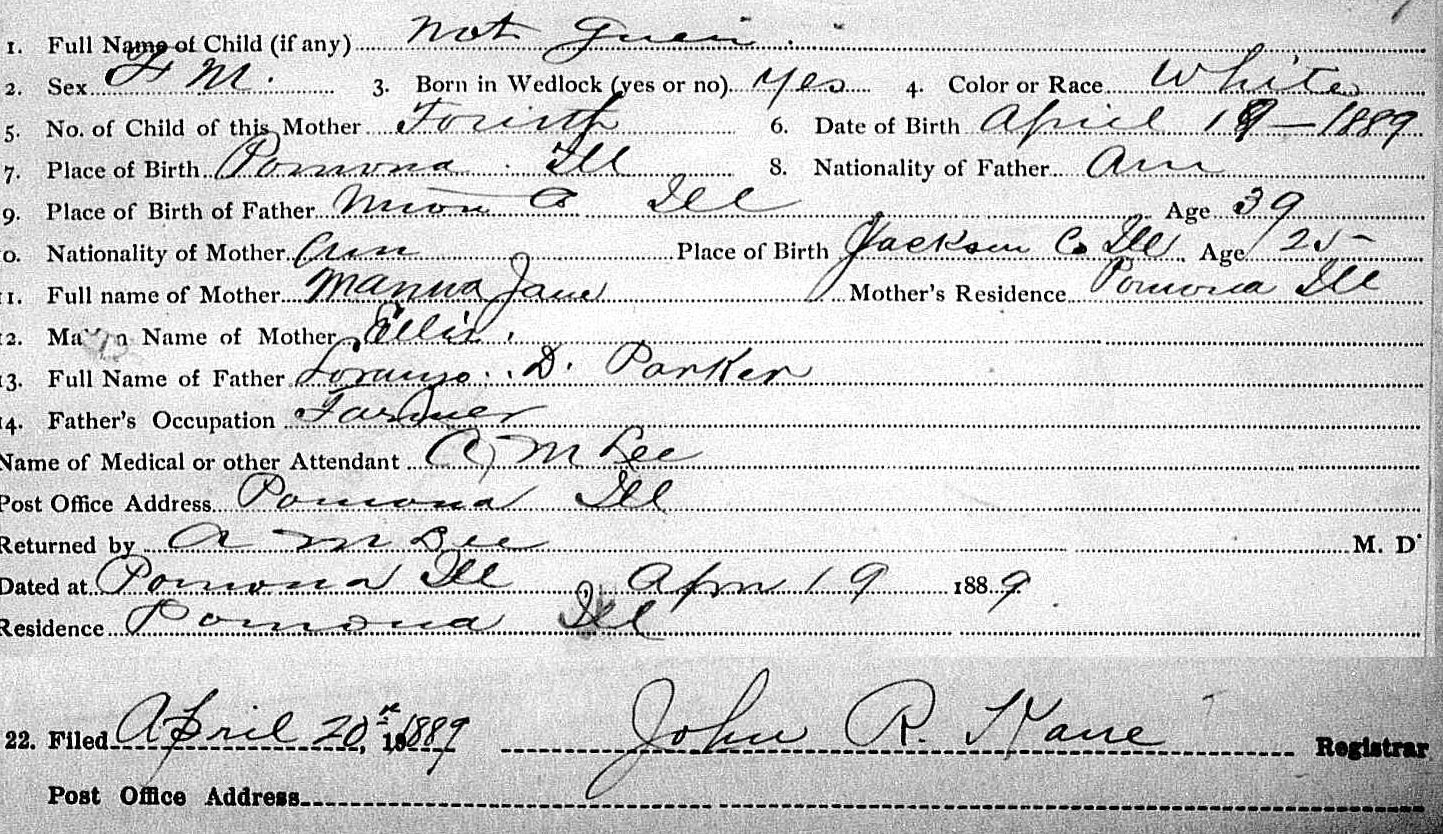 1. Full Name of Child (if any) Not Given
2. Sex F M. 3. Born in Wedlock (yes or no) Yes 4. Color or Race White
5. No. of Child of this Mother Fourth 6. Date of Birth April 19 — 1889
7. Place of Birth Pomona Ill 8. Nationality of Father Am
9. Place of Birth of Father Union Co Ill Age 39
0. Nationality of Mother Am Place of Birth Jackson Co Ill Age 25
11. Full name of Mother Jane Mother's Residence Pomona Ill
12. Name of Mother Ellis
13. Full Name of Father Loranzo D. Parker
14. Father's Occupation Farmer
Name of Medical or other Attendant A M Lee
Post Office Address Pomona Ill
Returned by A M Lee M. D.
Dated at Pomona Ill Apr 19 1889
Residence Pomona Ill
22. Filed April 20 1889 John R. Kane Registrar
Post Office Address